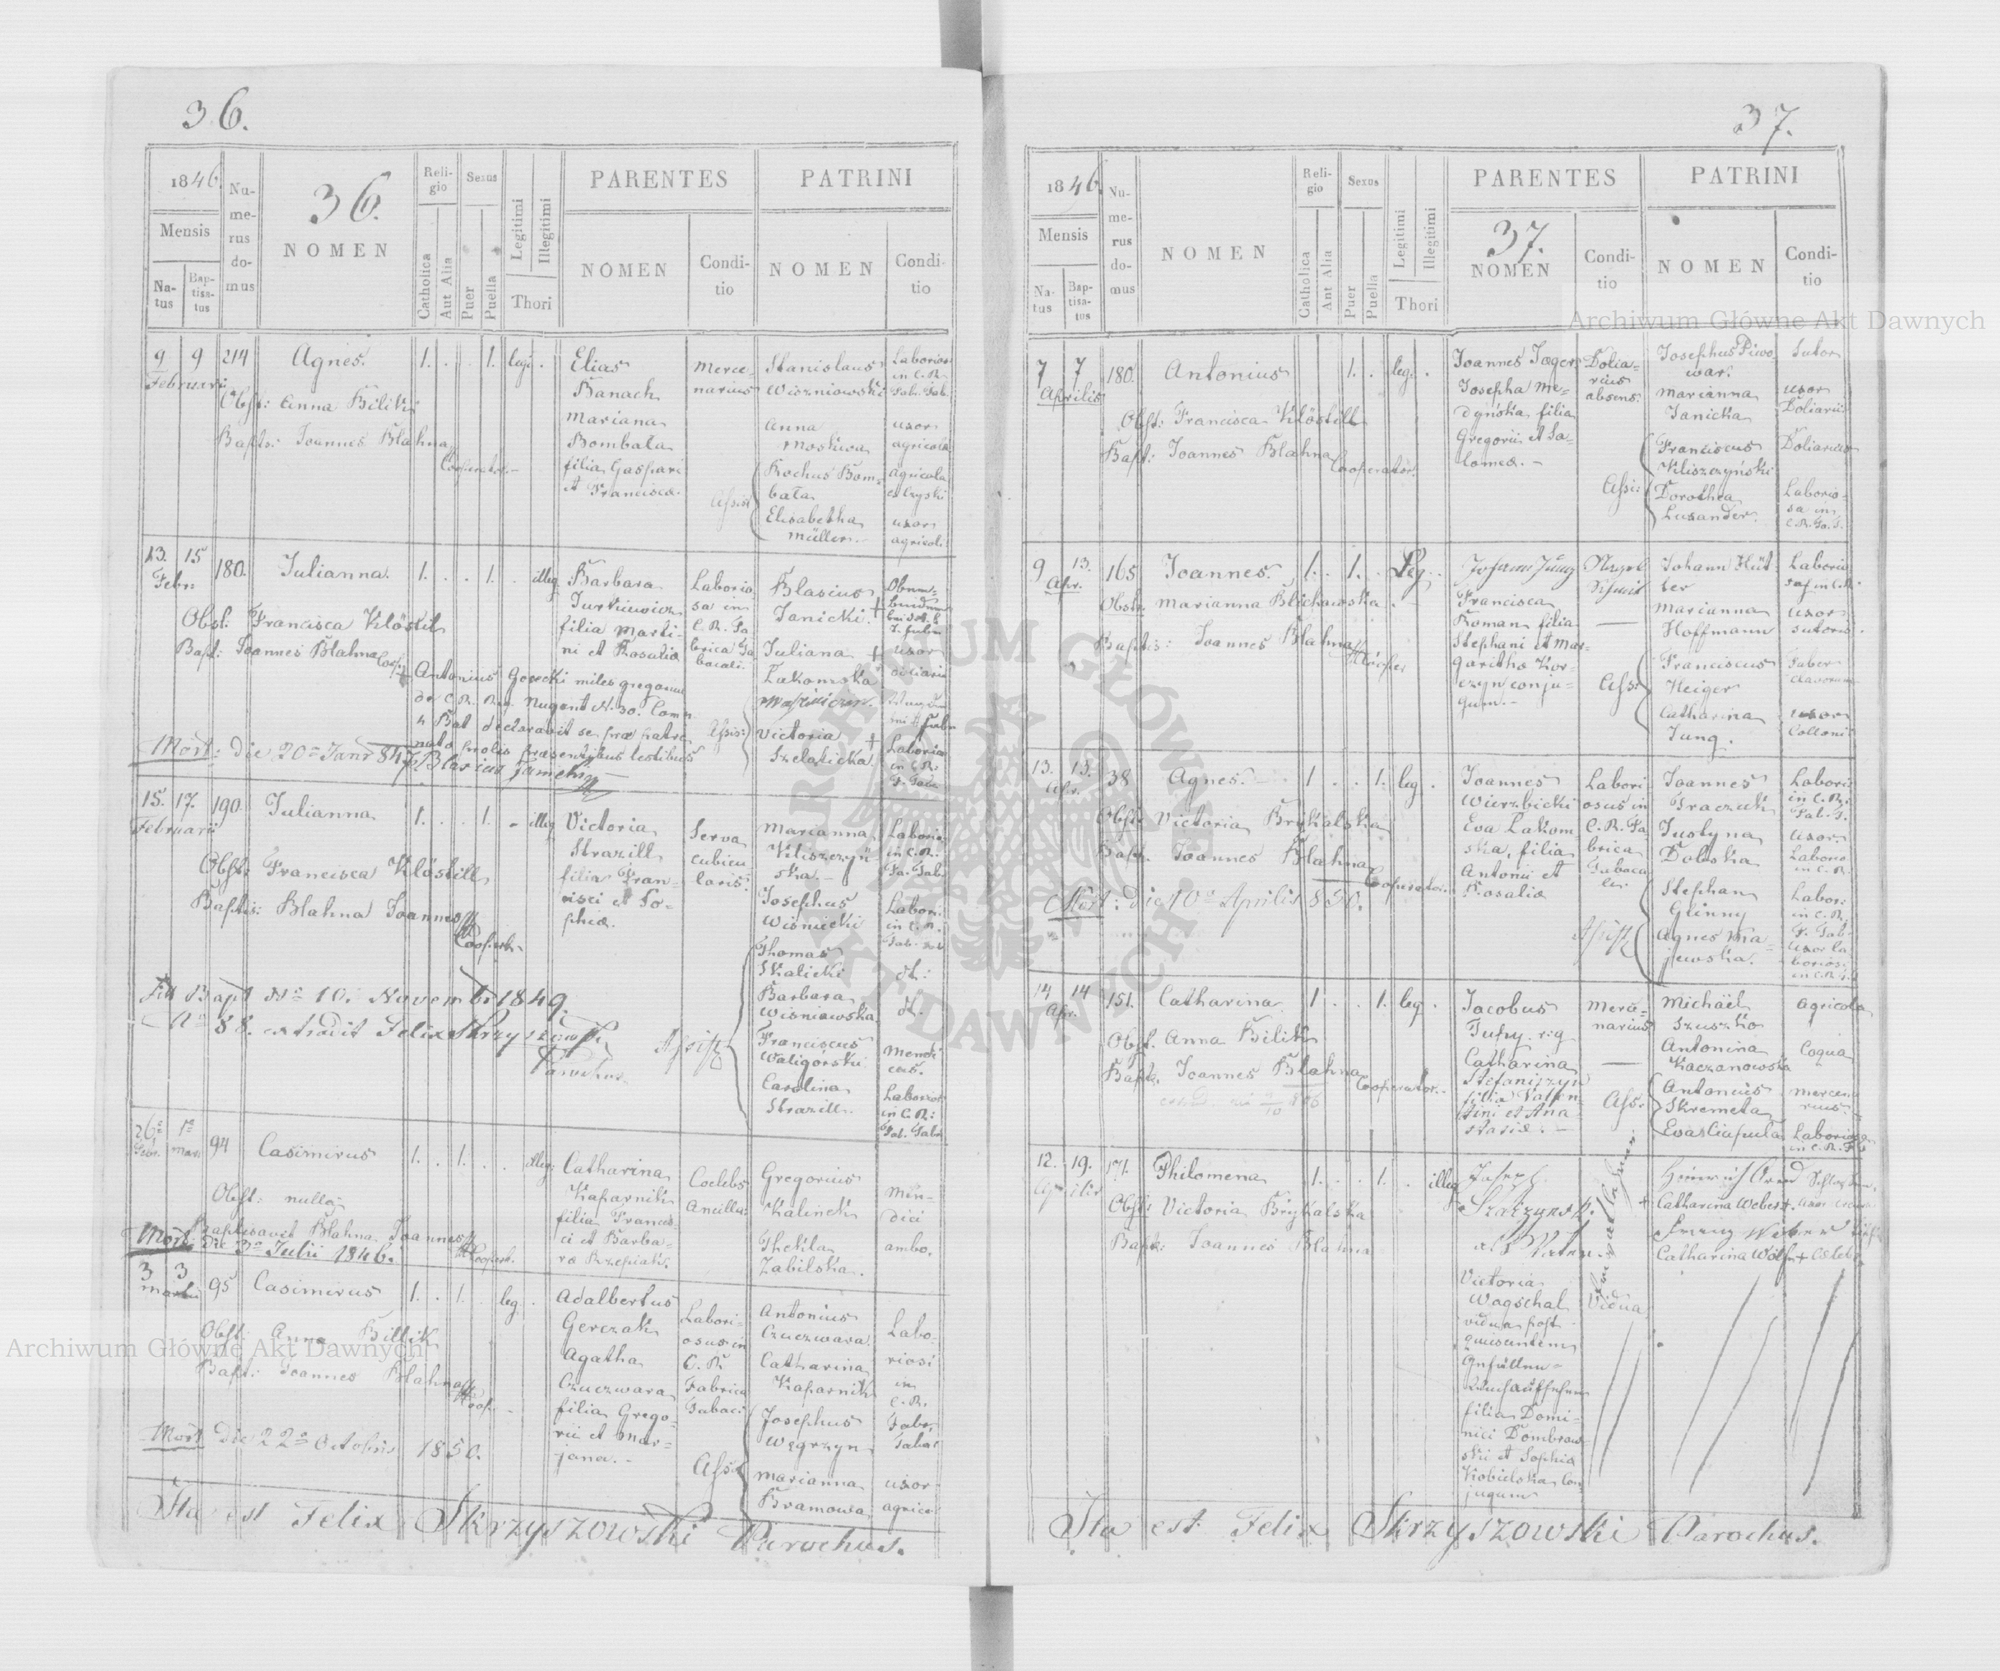 36.
1846.
Mensis
Natus
Baptisatus
Numerus domus
36.
NOMEN
Religio
Catholica
Aut Alia
Sexus
Puer
Puella
Legitimi
Illegitimi
Thori
PARENTES
NOMEN
Conditio
PATRINI
NOMEN
Conditio
9 9 214 Agnes. 1. . . 1. leg. .
Februarii
Obst: Anna Bilik
Bapts: Joannes Blahna
Cooperator.
Elias
Banach
Mariana
Bombata
filia Gaspari
et Francisca.
Merce-
narius
Stanislaus
Wiszniowski
Anna
Moskwa
Rochus Bom-
bata
Elisabetha
Müller.
Laborios
in C.R.
Fab. Tab.
uxor
agricola
agricola
uxor
agricol:
13. 15 180. Julianna. 1. . . 1. . illeg.
Febr.
Obst: Francisca Klöstill
Bapt: Joannes Blahna Coop.
Antonius Gorecki miles gregarius
de C. R. Reg. Nugent N. 30. Comp.
4 Bat declaravit se pro patre
nato prolis praesentibus testibus
Mort: die 20a Janr 847
Barbara
Jurkiewicz
filia Marti-
ni et Rosalia
Laborio
sa in
C. R. Fa
brica Ta
bacali.
Blasius
Janicki. +
Juliana +
Lakomska
Assis:
Victoria +
Szelaticka
uxor
Laborio
in C.R.
F. Tab.
15. 17. 190. Julianna 1. . . 1. - illeg.
Februarii
Obst: Francisca Klöstill
Baptis: Blahna Joannes
Cooperat.
Fit Bapt No 10. Novembr 1849.
No 88. extradit Felix Skrzyszowski
Parochus.
Victoria
Strazill
filia Fran-
cisci et So-
phia.
Serva
cubicu
laris.
Marianna
Kliszczyń
ska.-
Josephus
Wiśnicki
Thomas
Skalicki
Barbara
Wiśniowska
Franciscus
Waligórski
Carolina
Strazill.
Laborio
in C.R.
Fa. Tab.
Labori
in C.R.
Fab. Tab
dt:
dt.
Mendi
cus.
Laborios
in C.R:
Fab. Tab.
26a 1a 94 Casimirus 1. . 1. . . illeg:
Febr. Mart
Obst: nulla
Baptisavit Blahna Joannes
Cooperat.
Mort: Die 3a Julii 1846.
Catharina
Kaparnik
filia Franci-
ci et Barba-
ra Rzepiak.
Coelebs
Ancilla:
Gregorius
Kalinek
Thekla
Zabilska.
Men-
dici
ambo.
3 3 95 Casimirus 1. . 1. . leg. .
Martii
Obst: Anna Billik
Bapt: Joannes Blahna
Coop.
Mort Die 22a Octobris 1850.
Adalbertus
Gerczak
Agatha
Czuczwara
filia Grego-
rii et Mar-
jana.
Labori-
osus in
C. R.
Fabrica
Tabaci
Antonius
Czuczwara
Catharina
Kaparnik
Josephus
Węgrzyn
Assis
Marianna
Bramowa
Labo-
riosi
in
C. R.
Fabr.
Tabac
uxor
agrico
Ita est Felix Skrzyszowski Parochus.
37.
1846.
Mensis
Natus
Baptisatus
Numerus domus
NOMEN
Religio
Catholica
Aut Alia
Sexus
Puer
Puella
Legitimi
Illegitimi
Thori
PARENTES
37.
NOMEN
Conditio
PATRINI
NOMEN
Conditio
7 7 180. Antonius 1. . leg. .
Aprilis
Obst: Francisca Klöstill
Bapt: Joannes Blahna
Cooperator
Joannes Jager
Josepha Me-
dyńska filia
Gregorii et Sa-
lomea. -
Dolia-
rius
absens.
Josephus Piwo
war.
Marianna
Janicka
Franciscus
Kliszczyński
Assi:
Dorothea
Luxander.
Sutor
uxor
Doliarii
Doliarius
Laborio-
sa in
C. R. Fa. T.
9 13. 165 Joannes. 1. . 1. . Leg. .
Apr.
Obst: Marianna Blichawska. -
Baptis: Joannes Blahna
Johann Jung
Francisca
Roman filia
Stephani et Mar-
garitha Kor-
czyn conju-
gum. -
Johann Hüt
ter
Marianna
Hoffmann
Franciscus
Heiger
Assi
Catharina
Jung.
uxor
sutoris.
Faber
clavorum
uxor
Coloni
13. 13. 38 Agnes. 1 . . 1. leg .
Apr.
Obst: Victoria Brykalska
Bapt. Joannes Blahna
Cooperator.
Mort: Die 10a Aprilis 850.
Joannes
Wierzbicki
Eva Lakom
ska, filia
Antonii et
Rosalia
Labori
osus in
C. R. Fa
brica
Tabaca
le.
Joannes
Traczuk
Justyna
Dolinska
Stephan
Glinny
Assist
Agnes Ma-
jewska.
Laborio
in C. R.
Fab. T.
uxor
Laborio
in C. R.
Labor:
in C. R.
F. Tab.
uxor la
boriosi
in C. R. F. T.
14 14 151. Catharina 1 . . 1. leg .
Apr.
Obst. Anna Bilik
Bapt. Joannes Blahna
Cooperator.
Jacobus
Catharina
Stefaniszyn
filia Valen-
tini et Ana-
stasia. -
Merce-
narius
Michäel
Szuszko
Antonina
Kaczanowska
Antonius
Skremeta
Ass.
Agricola
Coqua
Mercena
rius.
Laboriosa
in C. R. F.
12. 19. 171. Philomena 1. . . 1. . illeg
Aprilis
Obst: Victoria Brykalska
Bapt: Joannes Blahna
Joseph
Szarzynski
als Vater.
Victoria
Wagschal
vidua post
quiscentem
filia Domi-
nici Dombrow
ski et Sophia
Kobielska con
jugum
Vidua
Catharina Weber +
Catharina Wolf +
Ita est Felix Skrzyszowski Parochus.
Archiwum Główne Akt Dawnych
Archiwum Główne Akt Dawnych
ARCHIWUM GŁÓWNE AKT DAWNYCH